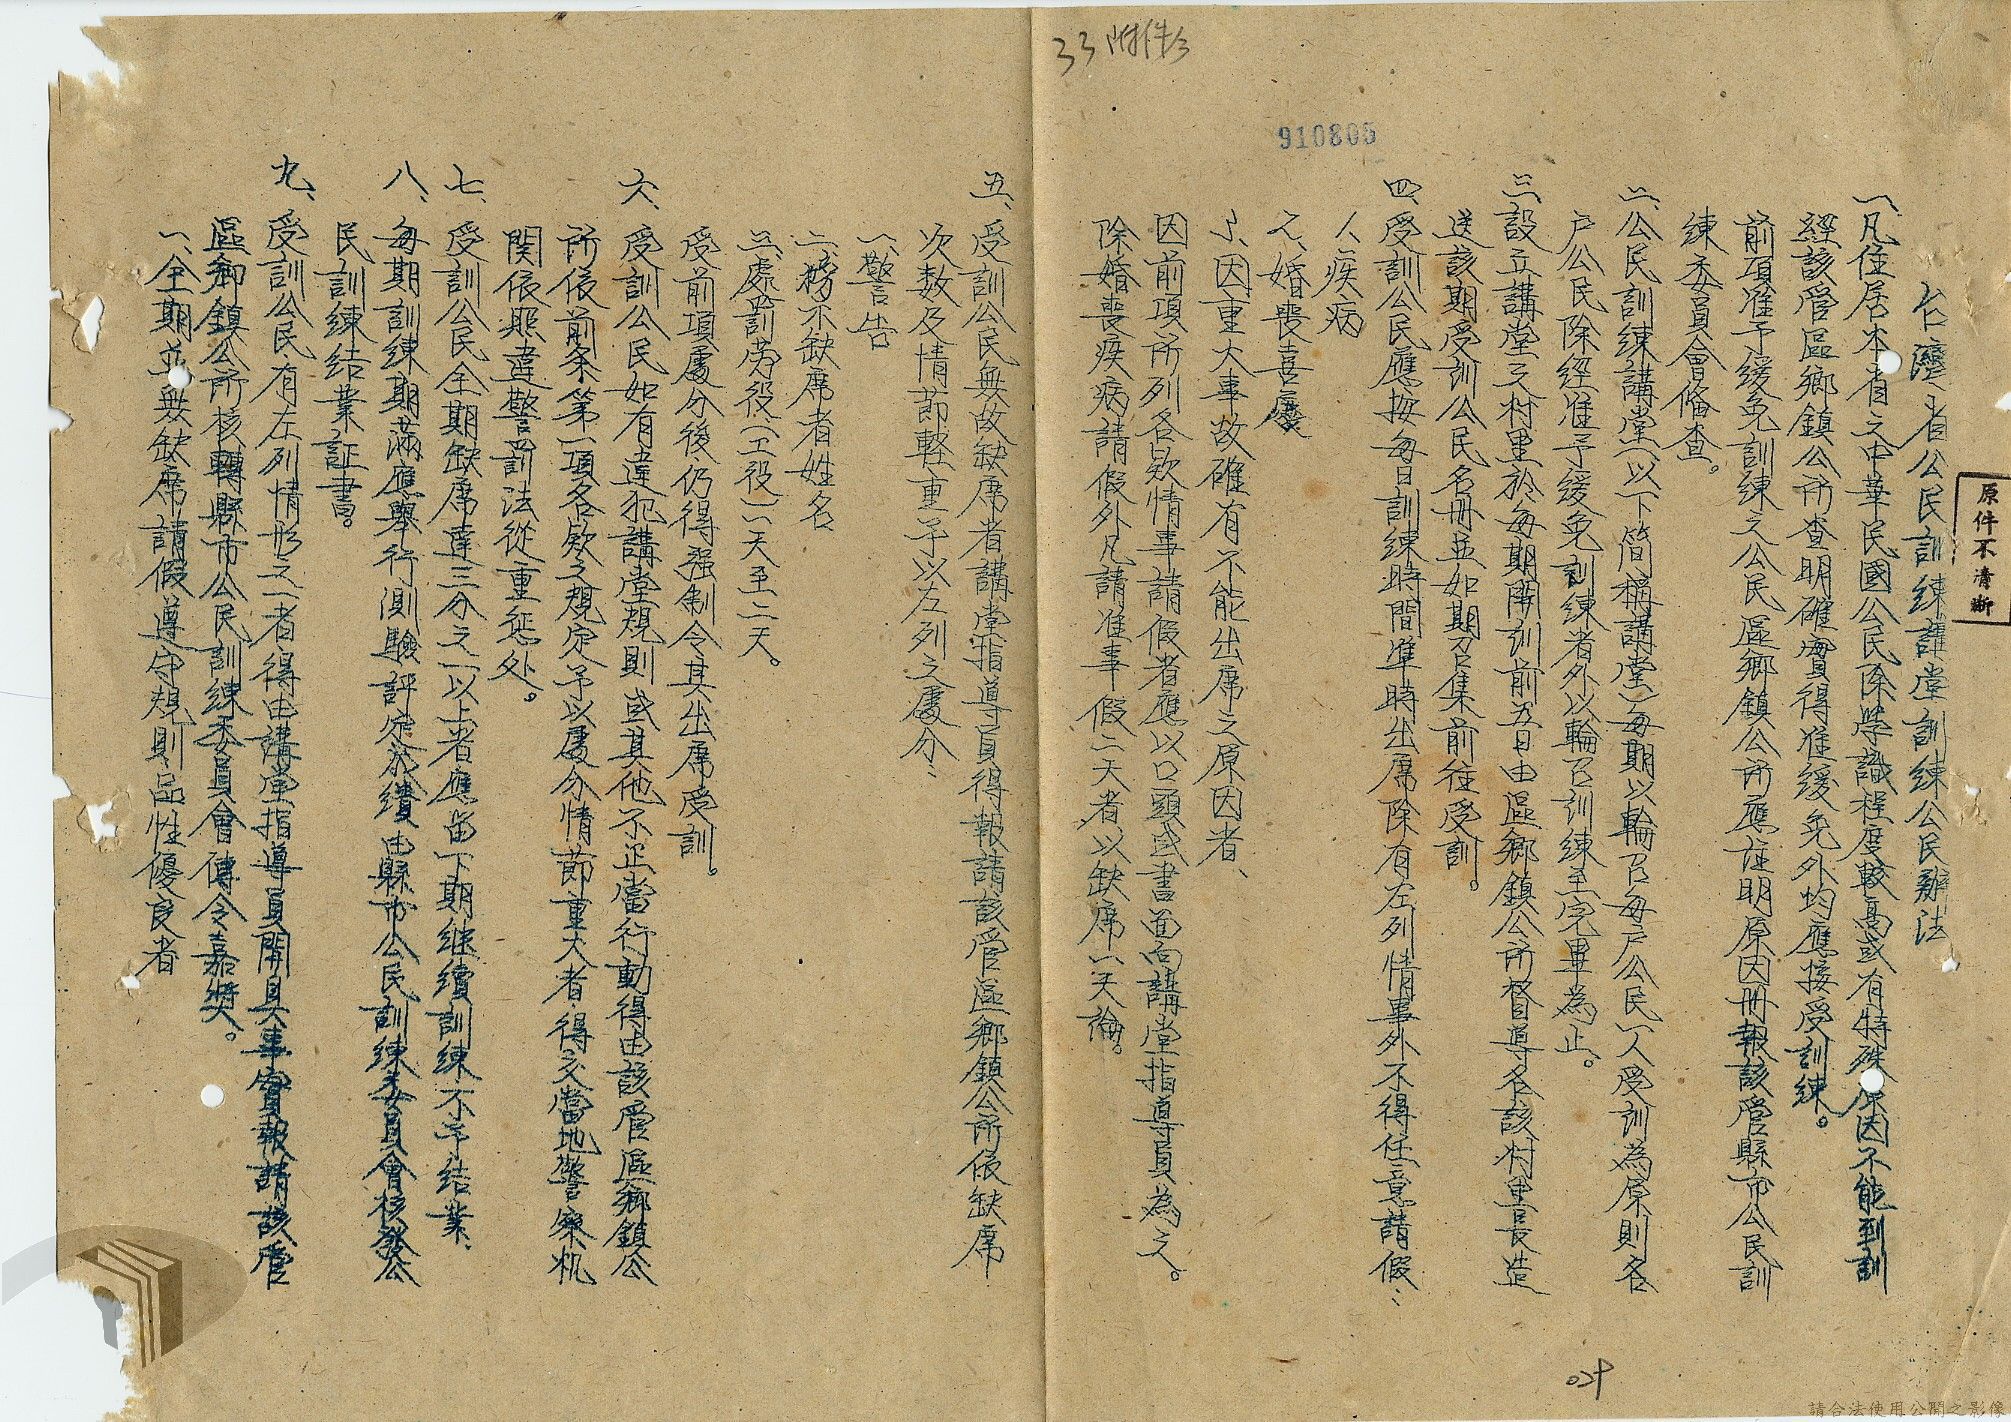 33 附件
910805
原件不清晰
台灣省公民訓練講堂訓練公民辦法
一、凡住居本省之中華民國公民除學識程度較高或有特殊原因不能到訓
經該管區鄉鎮公所查明確實得准緩免外均應接受訓練。
前項准予緩免訓練之公民區鄉鎮公所應註明原因冊報該管縣市公民訓
練委員會備查。
二、公民訓練講堂(以下簡稱講堂)每期以輪召每戶公民一人受訓為原則各
戶公民除經准予緩免訓練者外以輪召訓練至完畢為止。
三、設立講堂之村里於每期開訓前五日由區鄉鎮公所督導各該村里長造
送該期受訓公民名冊並如期召集前往受訓。
四、受訓公民應按每日訓練時間準時出席除有左列情事外不得任意請假：
1、疾病
2、婚喪喜慶
3、因重大事故確有不能出席之原因者、
因前項所列各欵情事請假者應以口頭或書面向講堂指導員為之。
除婚喪疾病請假外凡請准事假二天者以缺席一天論。
五、受訓公民無故缺席者講堂指導員得報請該管區鄉鎮公所依缺席
次数及情節輕重予以左列之處分：
一、警告
二、榜示缺席者姓名
三、處罰劳役(工役)一天至二天。
受前項處分後仍得强制令其出席受訓。
六、受訓公民如有違犯講堂規則或其他不正當行動得由該管區鄉鎮公
所依前条第一項各欵之規定予以處分情節重大者得交當地警察机
関依照違警罰法從重懲处。
七、受訓公民全期缺席達三分之一以上者應留下期继續訓練不予结業、
八、每期訓練期滿應舉行測驗評定成績由縣市公民訓練委員會核發公
民訓練结業証書。
九、受訓公民有左列情形之一者得由講堂指導員開具事實報請該管
區鄉鎮公所核轉縣市公民訓練委員會傳令嘉奬。
一、全期並無缺席請假遵守規則品性優良者
029
請合法使用公開之影像